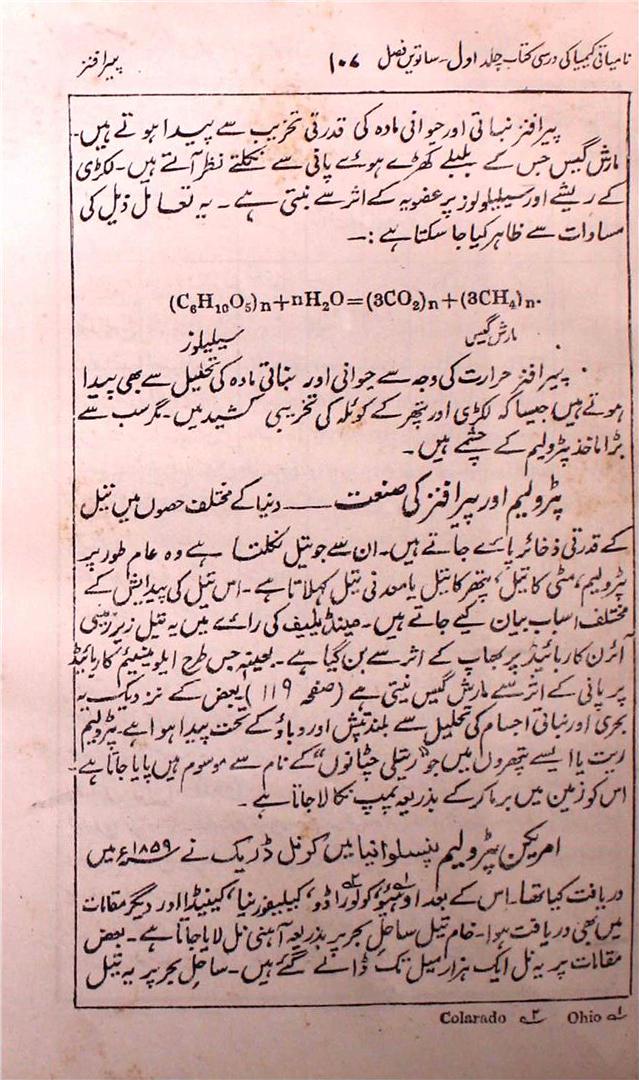 نامیاتی کیمیا کی درسی کتاب جلد اول۔ ساتویں فصل ۱۰۷ پیرافنز
پیرافنز نباتی اور حیوانی مادہ کی قدرتی تخریب سے پیدا ہوتے ہیں۔
مارش گیس جس کے بلبلے کھڑے ہوئے پانی سے نکلتے نظر آتے ہیں۔ لکڑی
کے ریشے اور سیلیلولوز پر عفویہ کے اثر سے بنتی ہے۔ یہ تعامل ذیل کی
مساوات سے ظاہر کیا جا سکتا ہے :۔
(C₆H₁₀O₅)n+nH₂O=(3CO₂)n+(3CH₄)n.
سیلیلوز مارش گیس
پیرافنز حرارت کی وجہ سے حیوانی اور نباتی مادہ کی تحلیل سے بھی پیدا
ہوتے ہیں جیسا کہ لکڑی اور پتھر کے کوئلہ کی تخریبی کشید میں۔ مگر سب سے
بڑا ماخذ پٹرولیم کے چشمے ہیں۔
پٹرولیم اور پیرافنز کی صنعت —— دنیا کے مختلف حصوں میں تیل
کے قدرتی ذخائر پائے جاتے ہیں۔ ان سے جو تیل نکلتا ہے وہ عام طور پر
پٹرولیم، مٹی کا تیل، پتھر کا تیل یا معدنی تیل کہلاتا ہے۔ اس تیل کی پیدایش کے
مختلف اسباب بیان کیے جاتے ہیں۔ مینڈیلیف کی رائے میں یہ تیل زیر زمینی
آئرن کاربائیڈ پر بھاپ کے اثر سے بن گیا ہے۔ بعینہ جس طرح ایلومینیئم کاربائیڈ
پر پانی کے اثر سے مارش گیس بنتی ہے (صفحہ ۱۱۹) بعض کے نزدیک یہ
بحری اور نباتی اجسام کی تحلیل سے بلند تپش اور دباؤ کے تحت پیدا ہوا ہے۔ پٹرولیم
ریت یا ایسے پتھروں میں جو "ریتلی چٹانوں" کے نام سے موسوم ہیں پایا جاتا ہے
اس کو زمین میں برما کر کے بذریعہ پمپ نکالا جاتا ہے۔
امریکن پٹرولیم پنسلوانیا میں کونل ڈریک نے ۱۸۵۹ء میں
دریافت کیا تھا۔ اس کے بعد اوہیو۱، کولوراڈو۲، کیلیفورنیا، کینیڈا اور دیگر مقامات
میں بھی دریافت ہوا۔ خام تیل ساحل بحر پر بذریعہ آہنی نل لایا جاتا ہے۔ بعض
مقامات پر یہ نل ایک ہزار میل تک ڈالے گئے ہیں۔ ساحل بحر پر یہ تیل
۱ Ohio ۲ Colarado